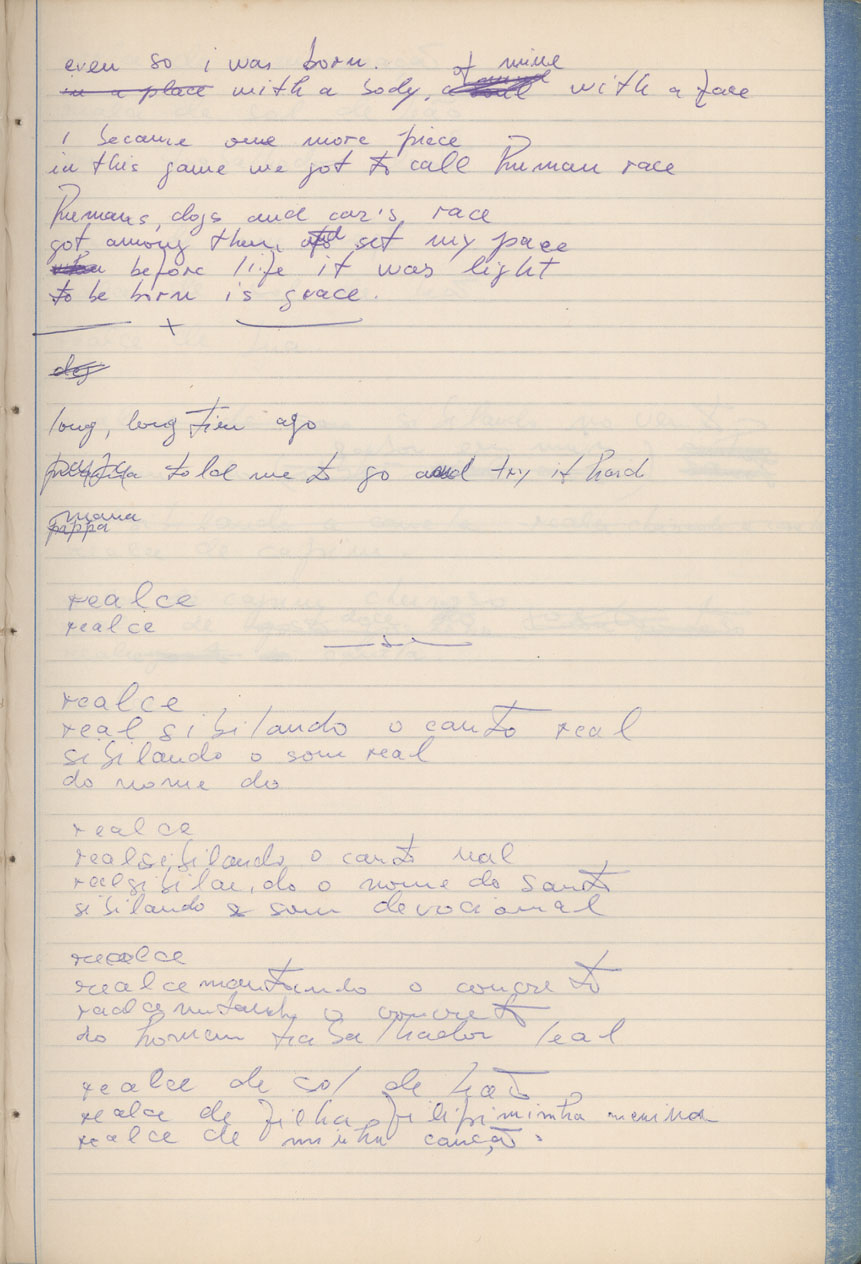 even so i was born.
of mine
in a place with a body, with a face
i became one more piece
in this game we got to call human race
humans, dogs and car's race
got among them and set my pace
before life it was light
to be born is grace.
dog
long, long time ago
told me to go and try it hard
mana
pippa
realce
realce
realce
real sibilando o canto real
sibilando o som real
do nome do
realce
realsibilando o canto real
realsibilando o nome do santo
sibilando o som devocional
realce
realce montando o concreto
realce montando o concreto
do homem trabalhador leal
realce de sol de
realce de filha, filipininha menina
realce de minha canção.